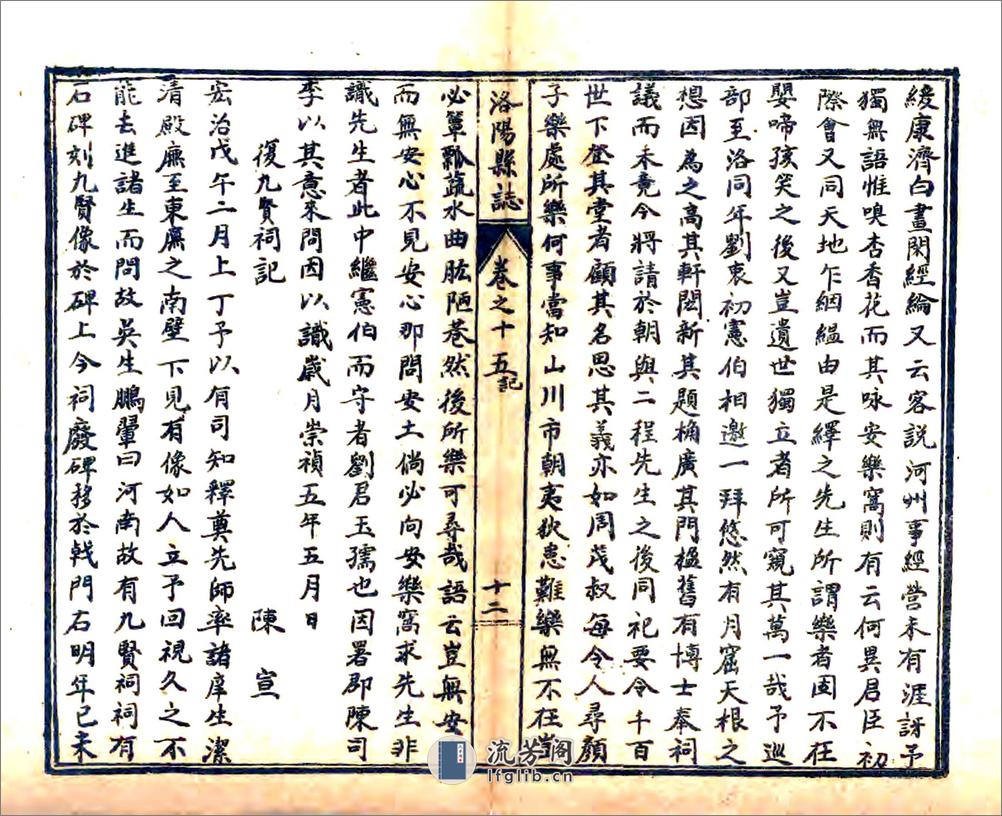 緩康濟白晝閑經綸又云客說河州事經營未有涯訝予
獨無語惟嗅杏香花而其咏安樂窩則有云何異君臣初
際會又同天地乍絪縕由是繹之先生所謂樂者固不在
嬰啼孩笑之後又豈遺世獨立者所可窺其萬一哉予巡
部至洛同年劉衷初憲伯相邀一拜悠然有月窟天根之
想因為之高其軒閎新其題桷廣其門楹舊有博士奉祠
議而未竟今將請於朝與二程先生之後同祀要令千百
世下登其堂者顧其名思其義亦如周茂叔每令人尋顏
子樂處所樂何事當知山川市朝夷狄患難樂無不在豈
洛陽縣誌 卷之十五 記 十二
必簞瓢蔬水曲肱陋巷然後所樂可尋哉語云豈無安
而無安心不見安心那問安土倘必向安樂窩求先生非
識先生者此中繼憲伯而守者劉君玉孺也因署郡陳司
李以其意來問因以識歲月崇禎五年五月日
復九賢祠記 陳宣
宏治戊午二月上丁予以有司知釋奠先師率諸庠生潔
清殿廡至東廡之南壁下見有像如人立予回視久之不
能去進諸生而問故吳生鵬翬曰河南故有九賢祠祠有
石碑刻九賢像於碑上今祠廢碑移於戟門右明年己未
流芳阁
lfglib.cn